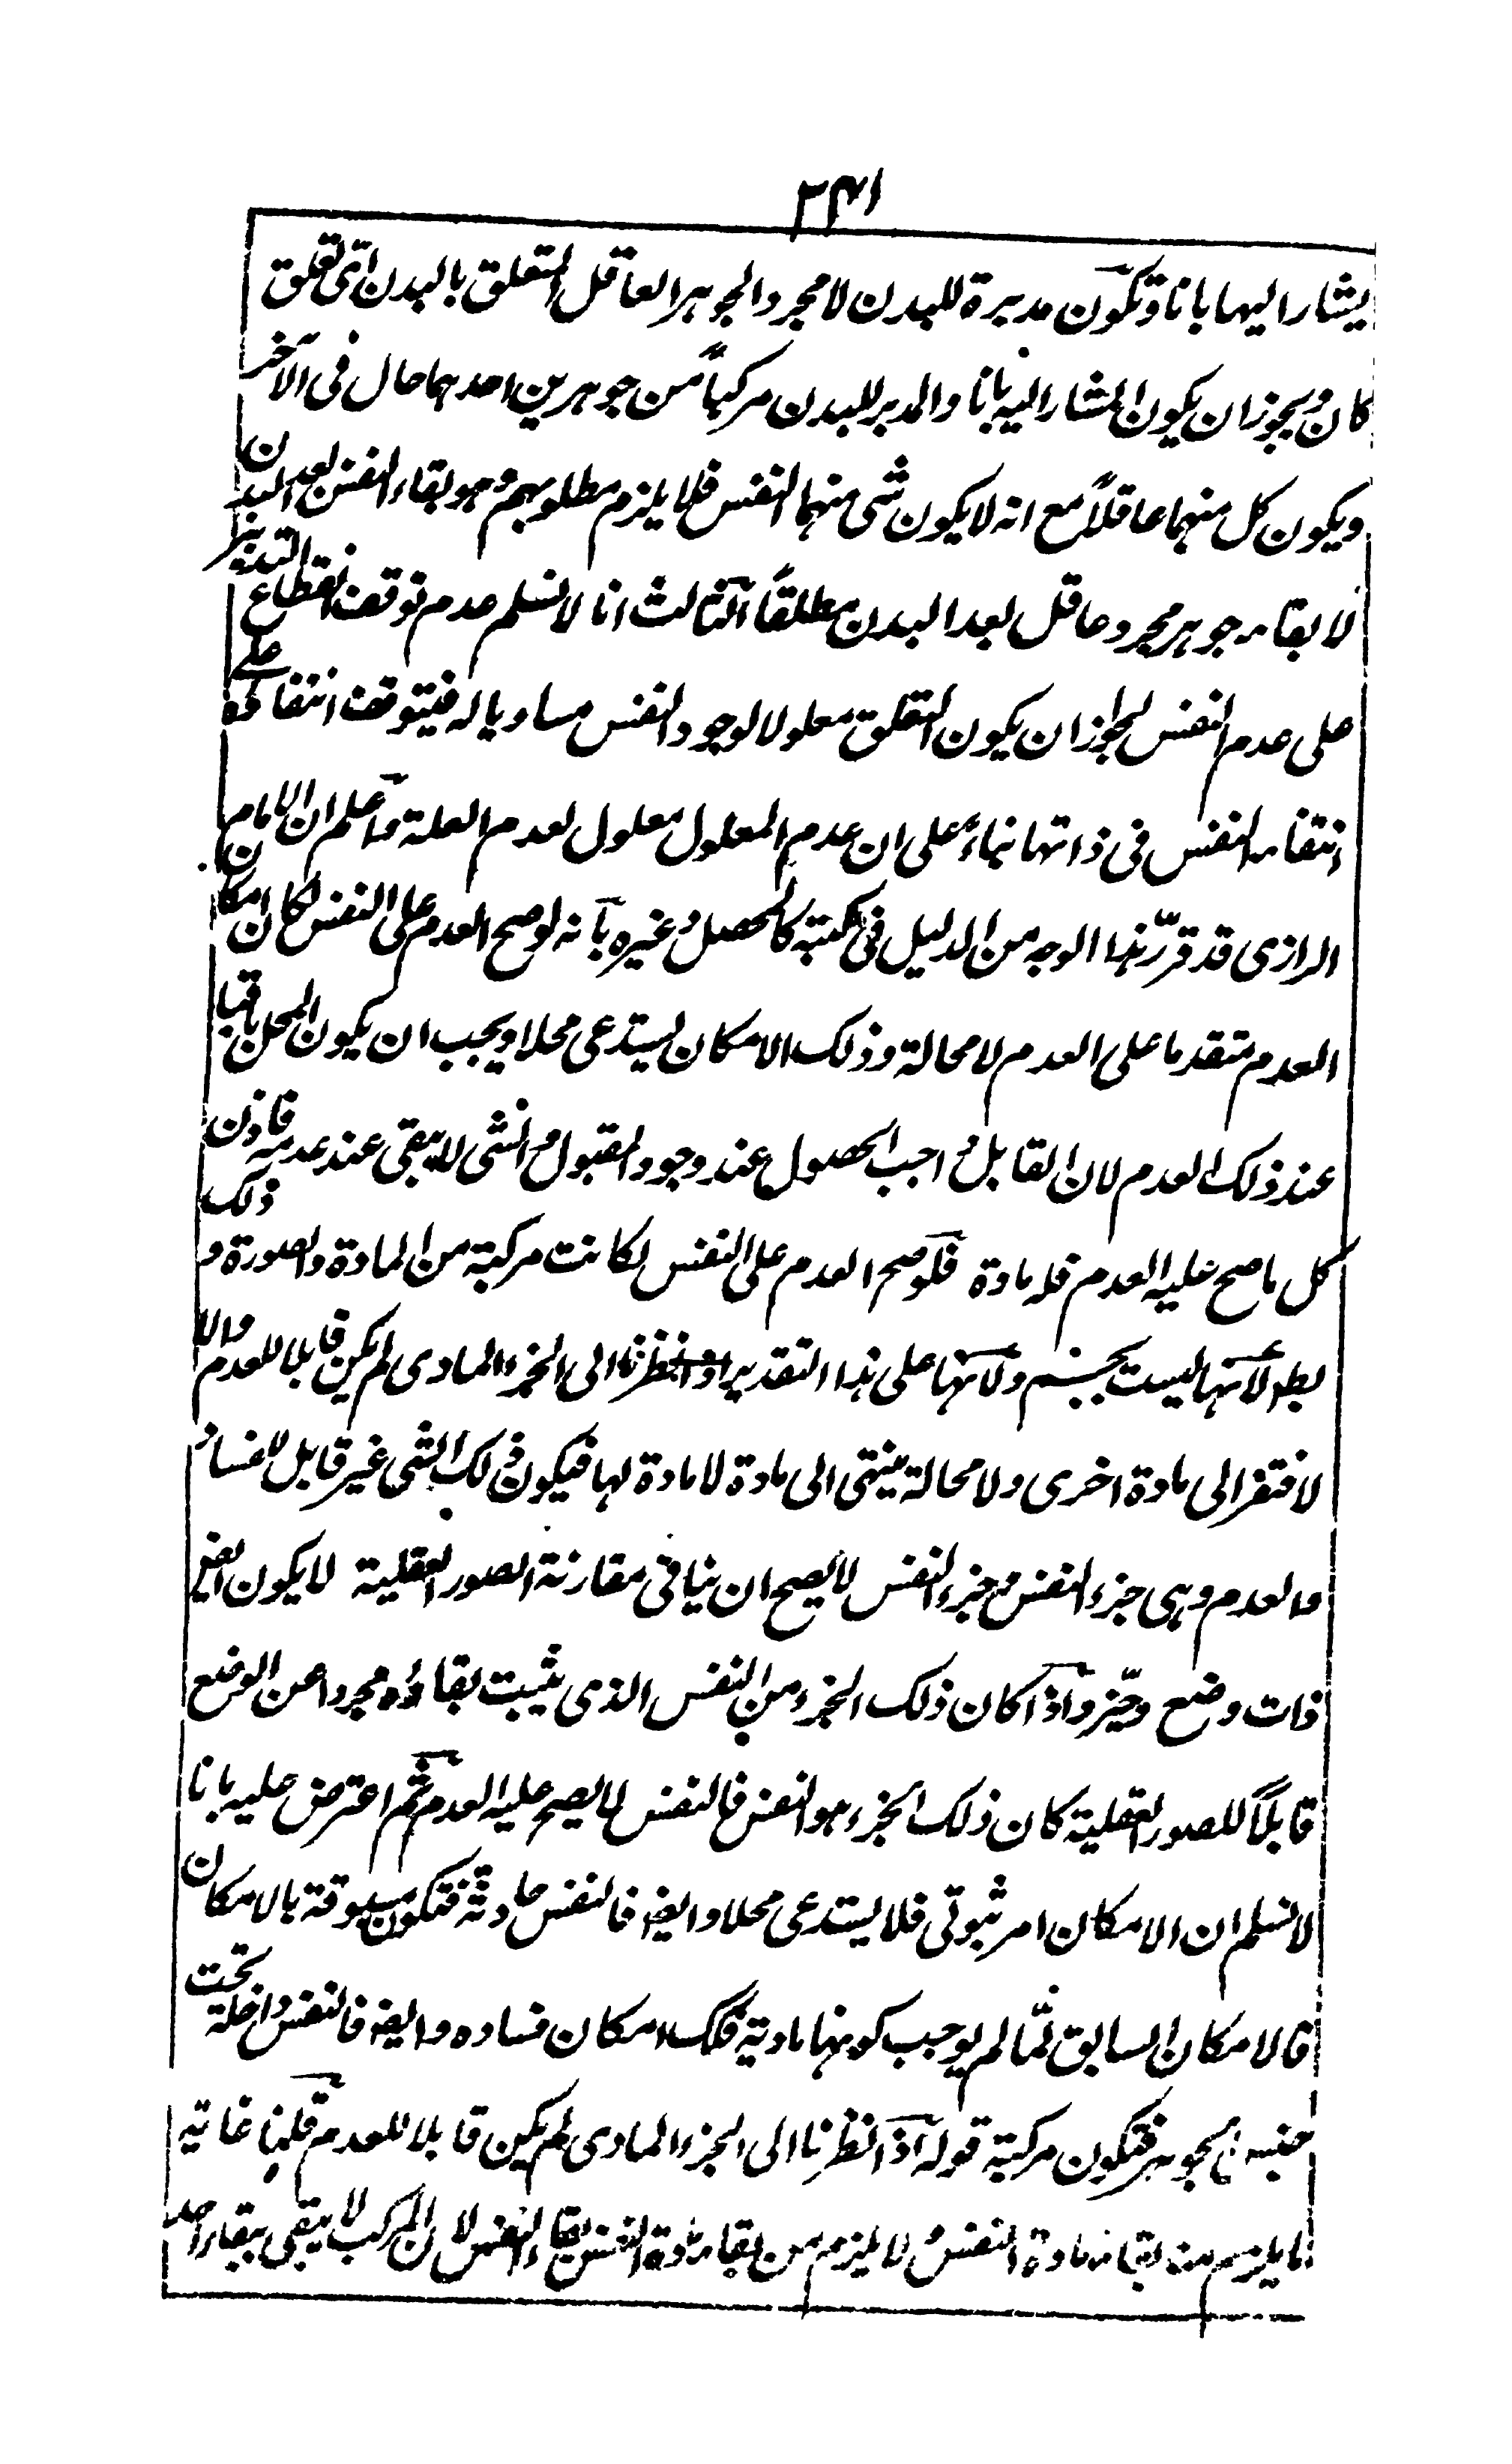 ٢٣١
يشار اليها بانا وتكون مدبرة للبدن لا مجرد الجوهر العاقل المتعلق بالبدن اى تعلق
كان ويجوز ان يكون المشار اليه بانا والمدبر للبدن مركباً من جوهرين احدهما حال فى الآخر
ويكون كل منهما عاقلاً مع انه لا يكون شى منهما النفس فلا يلزم مطلوبهم وهو بقاء النفس بعد البدن
لا بقاء جوهر مجرد عاقل بعد البدن مطلقاً الثالث انا لا نسلم عدم توقف انقطاع التدبير
على عدم النفس لجواز ان يكون التعلق معلولا لوجود النفس مساويا له فيتوقف انتفائه على
انتفاء النفس فى ذاتها بناءً على ان عدم المعلول معلول لعدم العلة واعلم ان الامام
الرازى قد قرّر هذا الوجه من الدليل فى كتبه كالمحصل وغيره بانه لو صح العدم على النفس لكان امكان
العدم متقدما على العدم لا محالة وذلك الامكان يستدعى محلا ويجب ان يكون المحل باقيا
عند ذلك العدم لان القابل واجب الحصول عند وجود المقبول والشى لا يبقى عند عدمه فاذن
كل ما صح عليه العدم فله مادة فلو صح العدم على النفس لكانت مركبة من المادة والصورة و ذلك
بطلانها ليست بجسم ولانها على هذا التقدير اذا نظرنا الى الجزء المادى لم يكن قابلا للعدم والا
لافتقر الى مادة اخرى ولا محالة ينتهى الى مادة لا مادة لها فيكون ذلك الشى غير قابل للفساد
والعدم وهى جزء النفس وجزء النفس لا يصح ان ينافى مقارنة الصور العقلية لا يكون ايضا
ذات وضع وحيّز واذا كان ذلك الجزء من النفس الذى يثبت بقاؤه مجردا عن الوضع
قابلاً للصور العقلية كان ذلك الجزء هو النفس فالنفس لا يصح عليه العدم ثم اعترض عليه بانا
لا نسلم ان الامكان امر ثبوتى فلا يستدعى محلا وايضا فالنفس حادثة فتكون مسبوقة بالامكان
فالامكان السابق لمّا لم يوجب كونها مادية فكك امكان فساده وايضا فالنفس داخلة تحت
جنس الجوهر فتكون مركبة قوله اذا نظرنا الى الجزء المادى لم يكن قابلا للعدم قلنا غاية
ما يلزم منه بقاء مادة النفس ولا يلزم من بقاء مادة النفس بقاء النفس لان المركب لا يبقى ببقاء احد